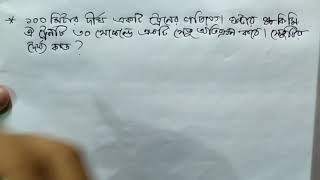 * ১০০ মিটার দীর্ঘ একটি ট্রেনের গতিবেগ ঘন্টায় কিমি
ঐ ট্রেনটি ৩০ সেকেন্ডে একটি সেতু অতিক্রম করে। সেতুটির
দৈর্ঘ্য কত ?